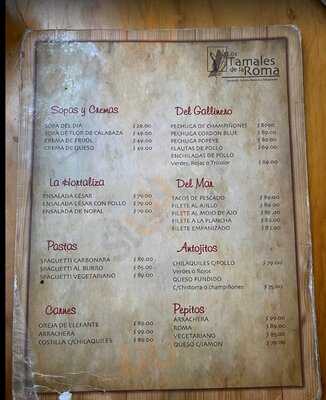 Los
Tamales
de la Roma
Sopas y Cremas
SOPA DEL DIA $ 28.00
SOPA DE FLOR DE CALABAZA $ 49.00
CREMA DE FRIJOL $ 49.00
CREMA DE QUESO $ 49.00
La Hortaliza
ENSALADA CÉSAR $ 79.00
ENSALADA CÉSAR CON POLLO $ 79.00
ENSALADA DE NOPAL $ 79.00
Pastas
SPAGUETTI CARBONARA $ 89.00
SPAGUETTI AL BURRO $ 89.00
SPAGUETTI VEGETARIANO $ 89.00
Carnes
OREJA DE ELEFANTE $ 89.00
ARRACHERA $ 99.00
COSTILLA C/CHILAQUILES $ 89.00
Del Gallinero
PECHUGA DE CHAMPIÑONES $ 89.00
PECHUGA CORDON BLUE $ 89.00
PECHUGA POPEYE $ 89.00
FLAUTAS DE POLLO $ 69.00
ENCHILADAS DE POLLO
Verdes, Rojas o Tricolor $ 84.00
Del Mar
TACOS DE PESCADO $ 89.00
FILETE AL AJILLO $ 89.00
FILETE AL MOJO DE AJO $ 89.00
FILETE A LA PLANCHA $ 89.00
FILETE EMPANIZADO $ 89.00
Antojitos
CHILAQUILES C/POLLO $ 79.00
Verdes o Rojos
QUESO FUNDIDO
C/chistorra o champiñones $ 75.00
Pepitos
ARRACHERA $ 99.00
ROMA $ 89.00
VEGETARIANO $ 85.00
QUESO C/JAMON $ 79.00